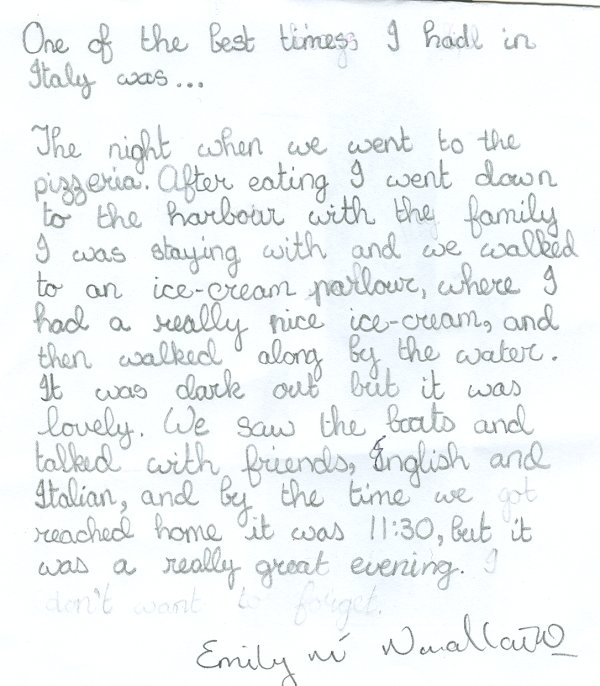 One of the best times I had in
Italy was...
The night when we went to the
pizzeria. After eating I went down
to the harbour with the family
I was staying with and we walked
to an ice-cream parlour, where I
had a really nice ice-cream, and
then walked along by the water.
It was dark out but it was
lovely. We saw the boats and
talked with friends, English and
Italian, and by the time we got
reached home it was 11:30, but it
was a really great evening. I
don't want to forget.
Emily